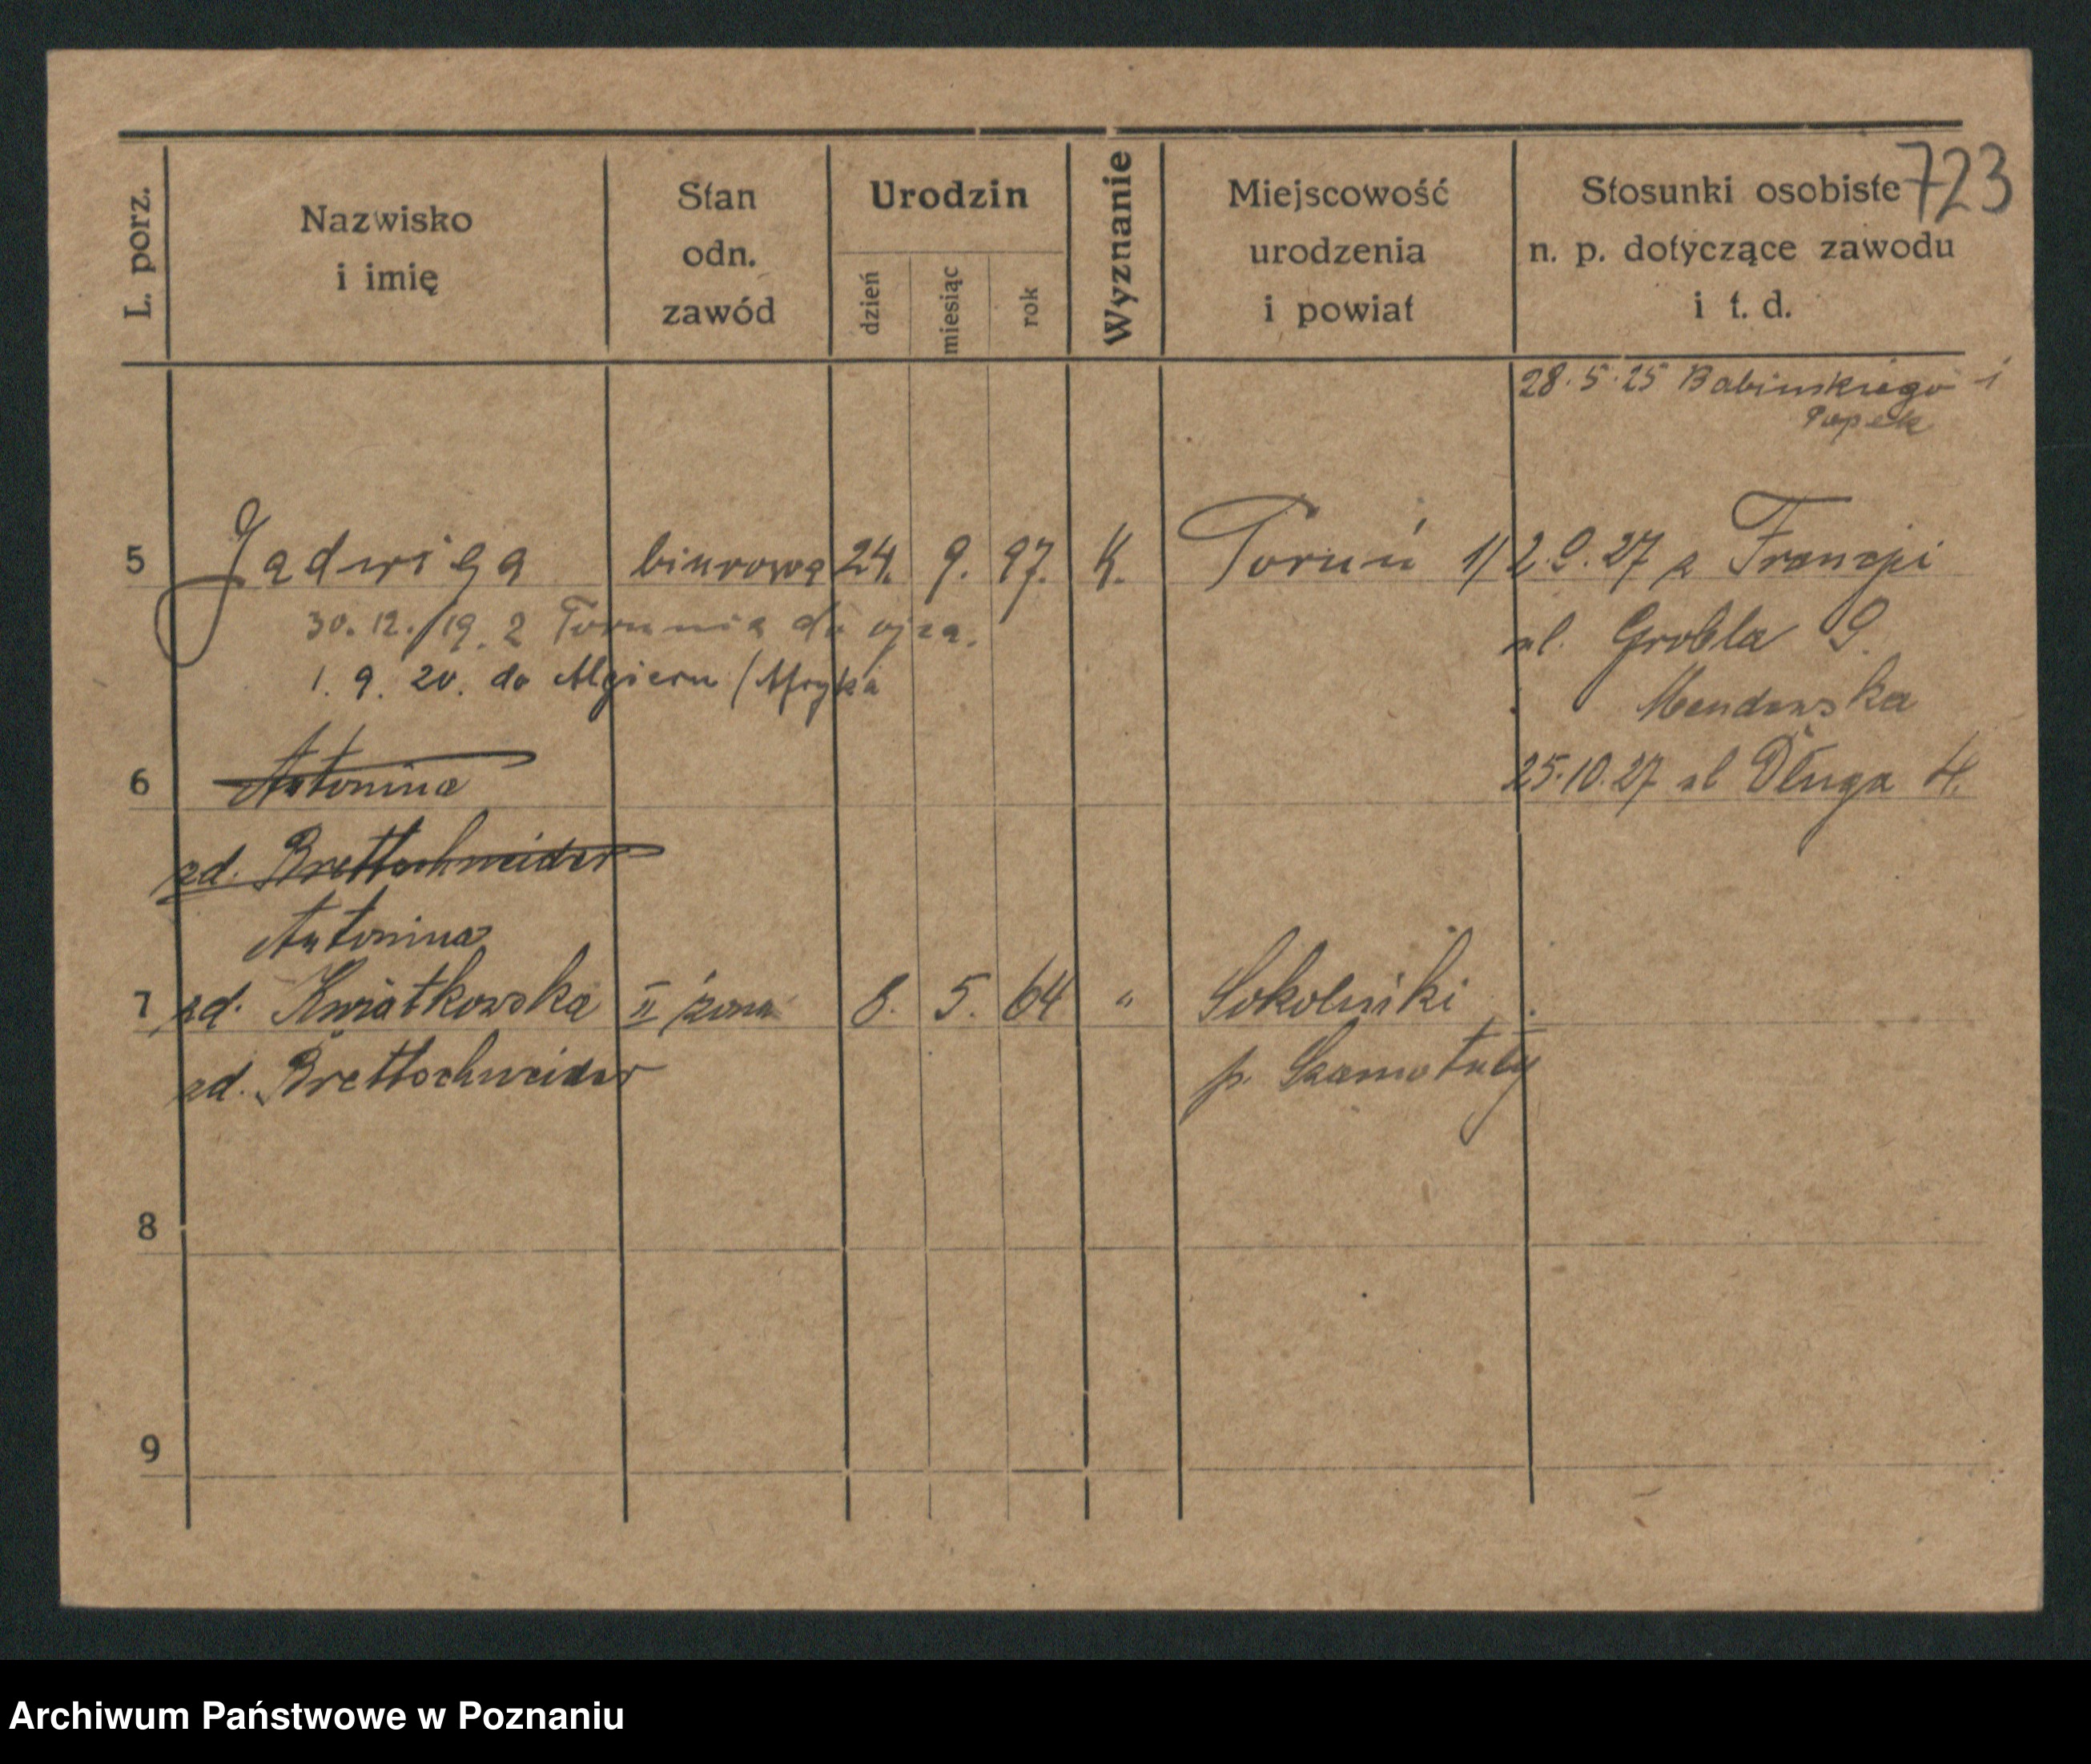 723
L. porz.
Nazwisko
i imię
Stan
odn.
zawód
Urodzin
dzień
miesiąc
rok
Wyznanie
Miejscowość
urodzenia
i powiat
Stosunki osobiste
n. p. dotyczące zawodu
i t. d.
28. 5. 25 Babinskiego
5 Jadwiga biurowa 24. 9. 97. K. Toruń 1/ 2.9.27 z Francji
30. 12. /19. z Torunia do ojca.
ul. Grobla 9.
1. 9. 20. do Algieru / Afryka
6 Antonina
25.10.27 ul Długa 4.
zd. Brettschneider
Antonina
7 zd. Kwiatkowska II żona 8. 5. 64 " Sokolniki
zd. Brettschneider p. Szamotuły
8
9
Archiwum Państwowe w Poznaniu